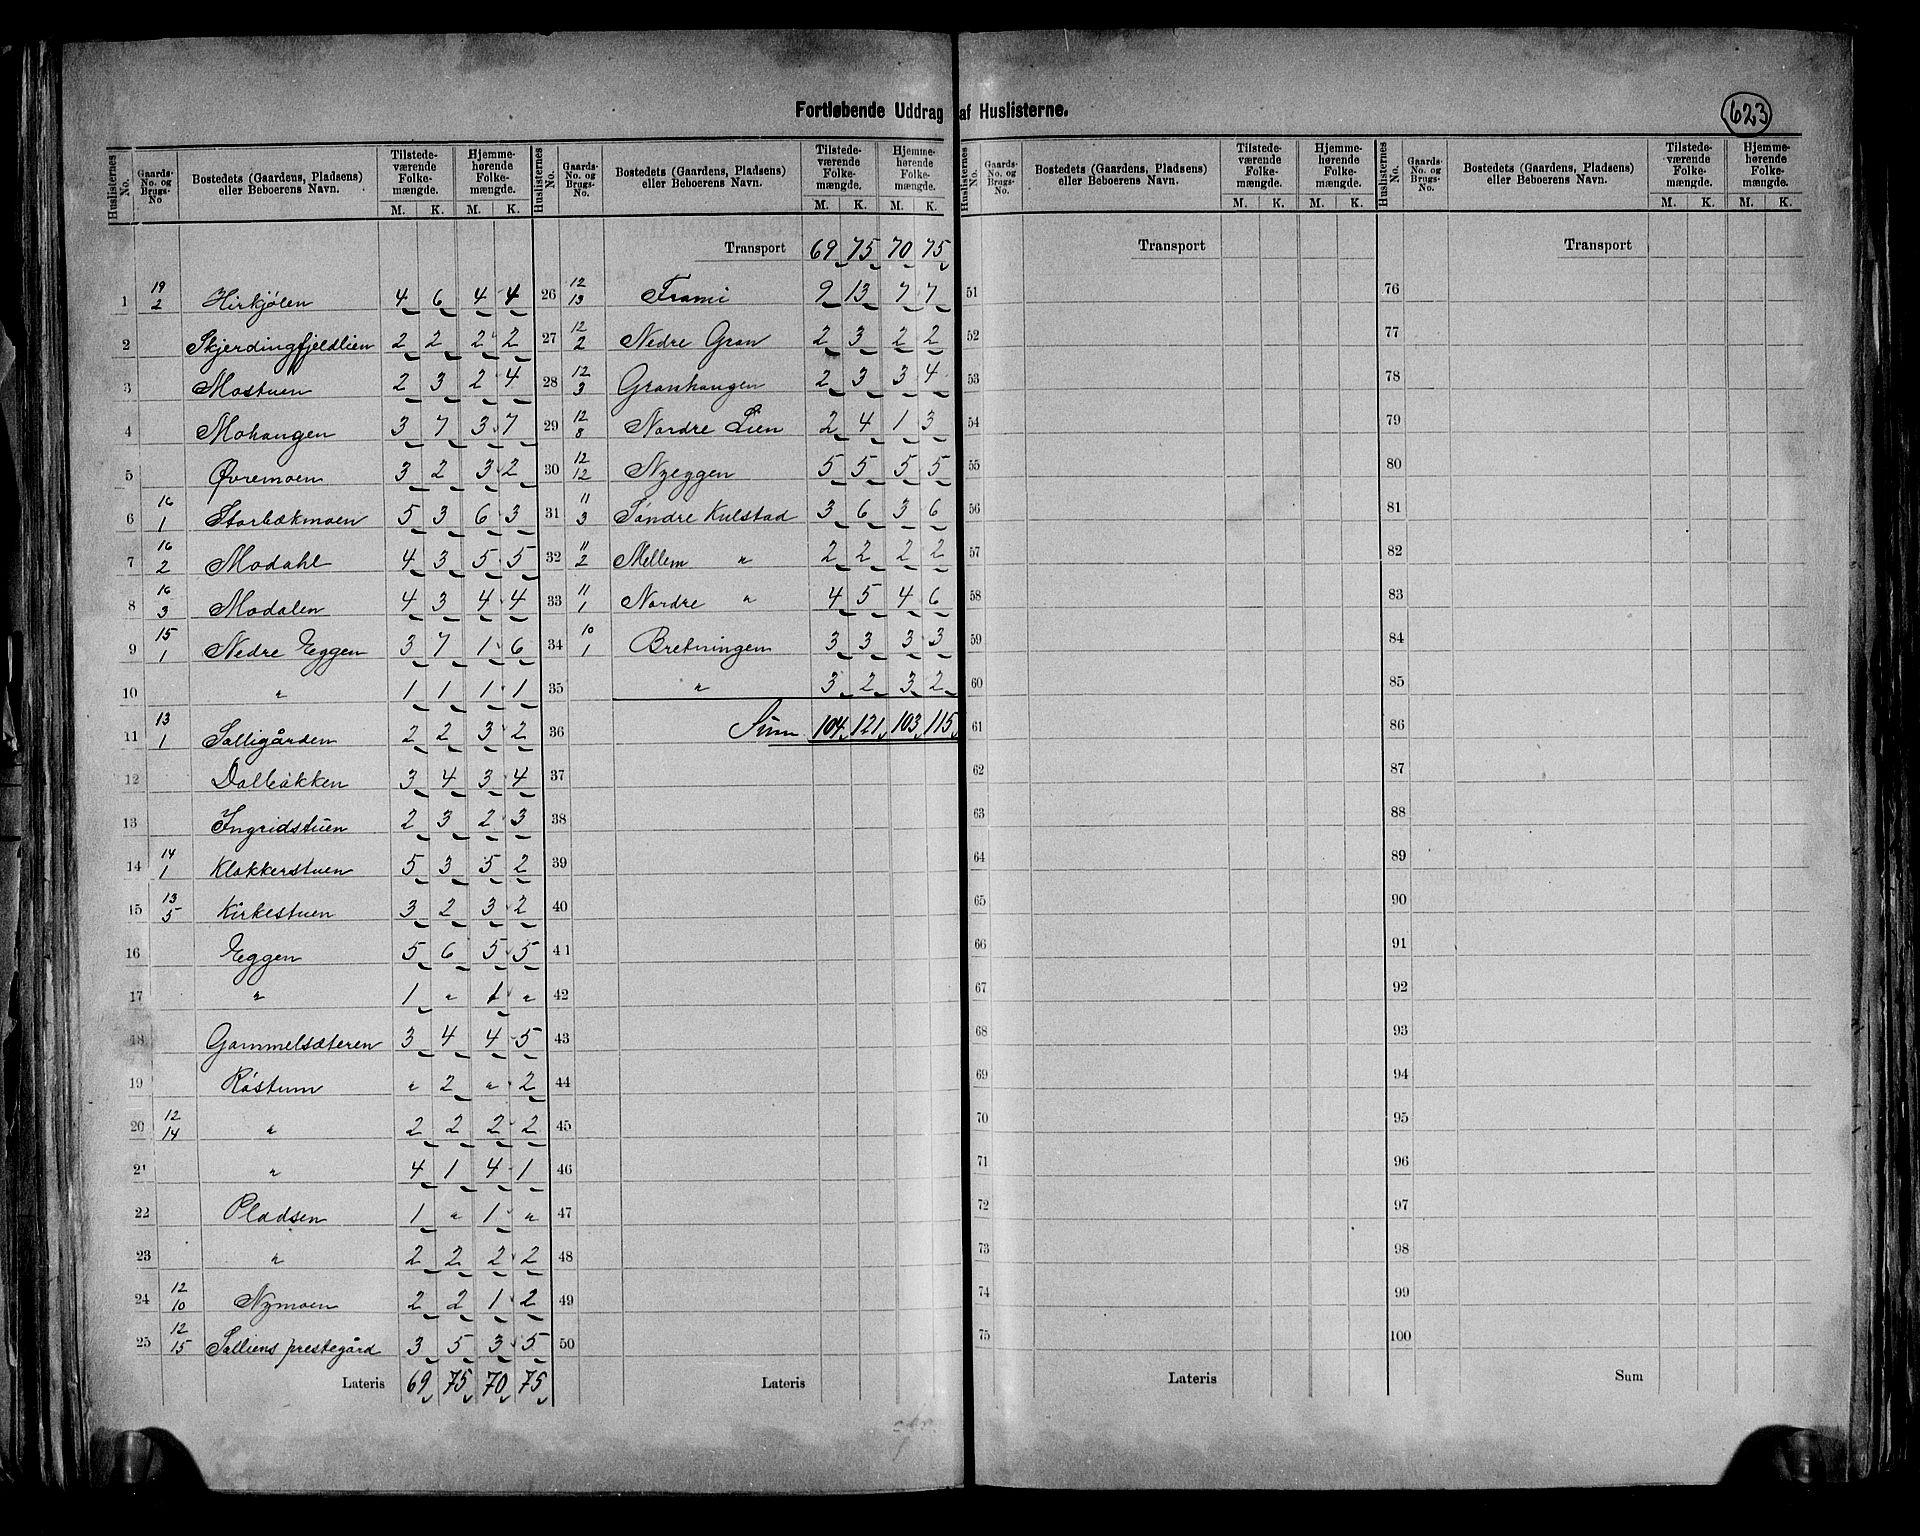 Fortløbende Uddrag af Huslisterne.
623
Huslisternes No. Gaards-No. og Brugs-No Bostedets (Gaardens, Pladsens) eller Beboerens Navn. Tilstede-værende Folke-mængde. M. K. Hjemme-hørende Folke-mængde. M. K.
1 19/2 Hirkjølen 4 6 4 4
2 Skjerdingfjeldlien 2 2 2 2
3 Mostuen 2 3 2 4
4 Mohaugen 3 7 3 7
5 Øvremoen 3 2 3 2
6 16/1 Storbækmoen 5 3 6 3
7 16/2 Modahl 4 3 5 5
8 16/3 Modalen 4 3 4 4
9 15/1 Nedre Eggen 3 7 1 6
10 " 1 1 1 1
11 13/1 Solligården 2 2 3 2
12 Dalbäkken 3 4 3 4
13 Ingridstuen 2 3 2 3
14 14/1 Klokkerstuen 5 3 5 2
15 13/5 Kirkestuen 3 2 3 2
16 Eggen 5 6 5 5
17 " 1 " 1 "
18 Gammelsæteren 3 4 4 5
19 Röstum " 2 " 2
20 12/14 " 2 2 2 2
21 " 4 1 4 1
22 Pladsen 1 " 1 "
23 " 2 2 2 2
24 12/10 Nymoen 2 2 1 2
25 12/15 Solliens prestegård 3 5 3 5
Lateris 69 75 70 75
Huslisternes No. Gaards-No. og Brugs-No. Bostedets (Gaardens, Pladsens) eller Beboerens Navn. Tilstede-værende Folke-mængde. M. K. Hjemme-hørende Folke-mængde. M. K.
Transport 69 75 70 75
26 12/13 Frami 9 13 7 7
27 12/2 Nedre Gran 2 3 2 2
28 12/3 Granhaugen 2 3 3 4
29 12/8 Nordre Lien 2 4 1 3
30 12/12 Nyeggen 5 5 5 5
31 11/3 Söndre Kulstad 3 6 3 6
32 11/2 Mellem " 2 2 2 2
33 11/1 Nordre " 4 5 4 6
34 10/1 Bretningen 3 3 3 3
35 " 3 2 3 2
36 Sum 104 121 103 115
37
38
39
40
41
42
43
44
45
46
47
48
49
50
Lateris
Huslisternes No. Gaards-No. og Brugs-No. Bostedets (Gaardens, Pladsens) eller Beboerens Navn. Tilstede-værende Folke-mængde. M. K. Hjemme-hørende Folke-mængde. M. K.
Transport
51
52
53
54
55
56
57
58
59
60
61
62
63
64
65
66
67
68
69
70
71
72
73
74
75
Lateris
Huslisternes No. Gaards-No. og Brugs-No. Bostedets (Gaardens, Pladsens) eller Beboerens Navn. Tilstede-værende Folke-mængde. M. K. Hjemme-hørende Folke-mængde. M. K.
Transport
76
77
78
79
80
81
82
83
84
85
86
87
88
89
90
91
92
93
94
95
96
97
98
99
100
Sum